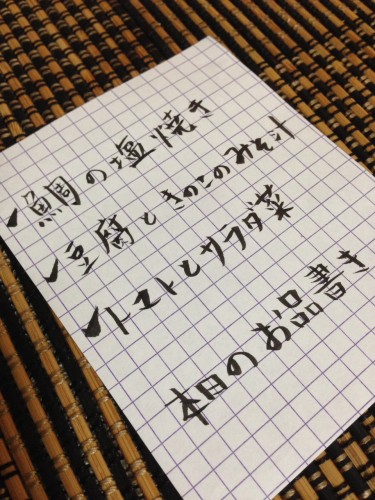 一鯛の塩焼き
一豆腐ときのこのみそ汁
一トマトとサラダ菜
本日のお品書き